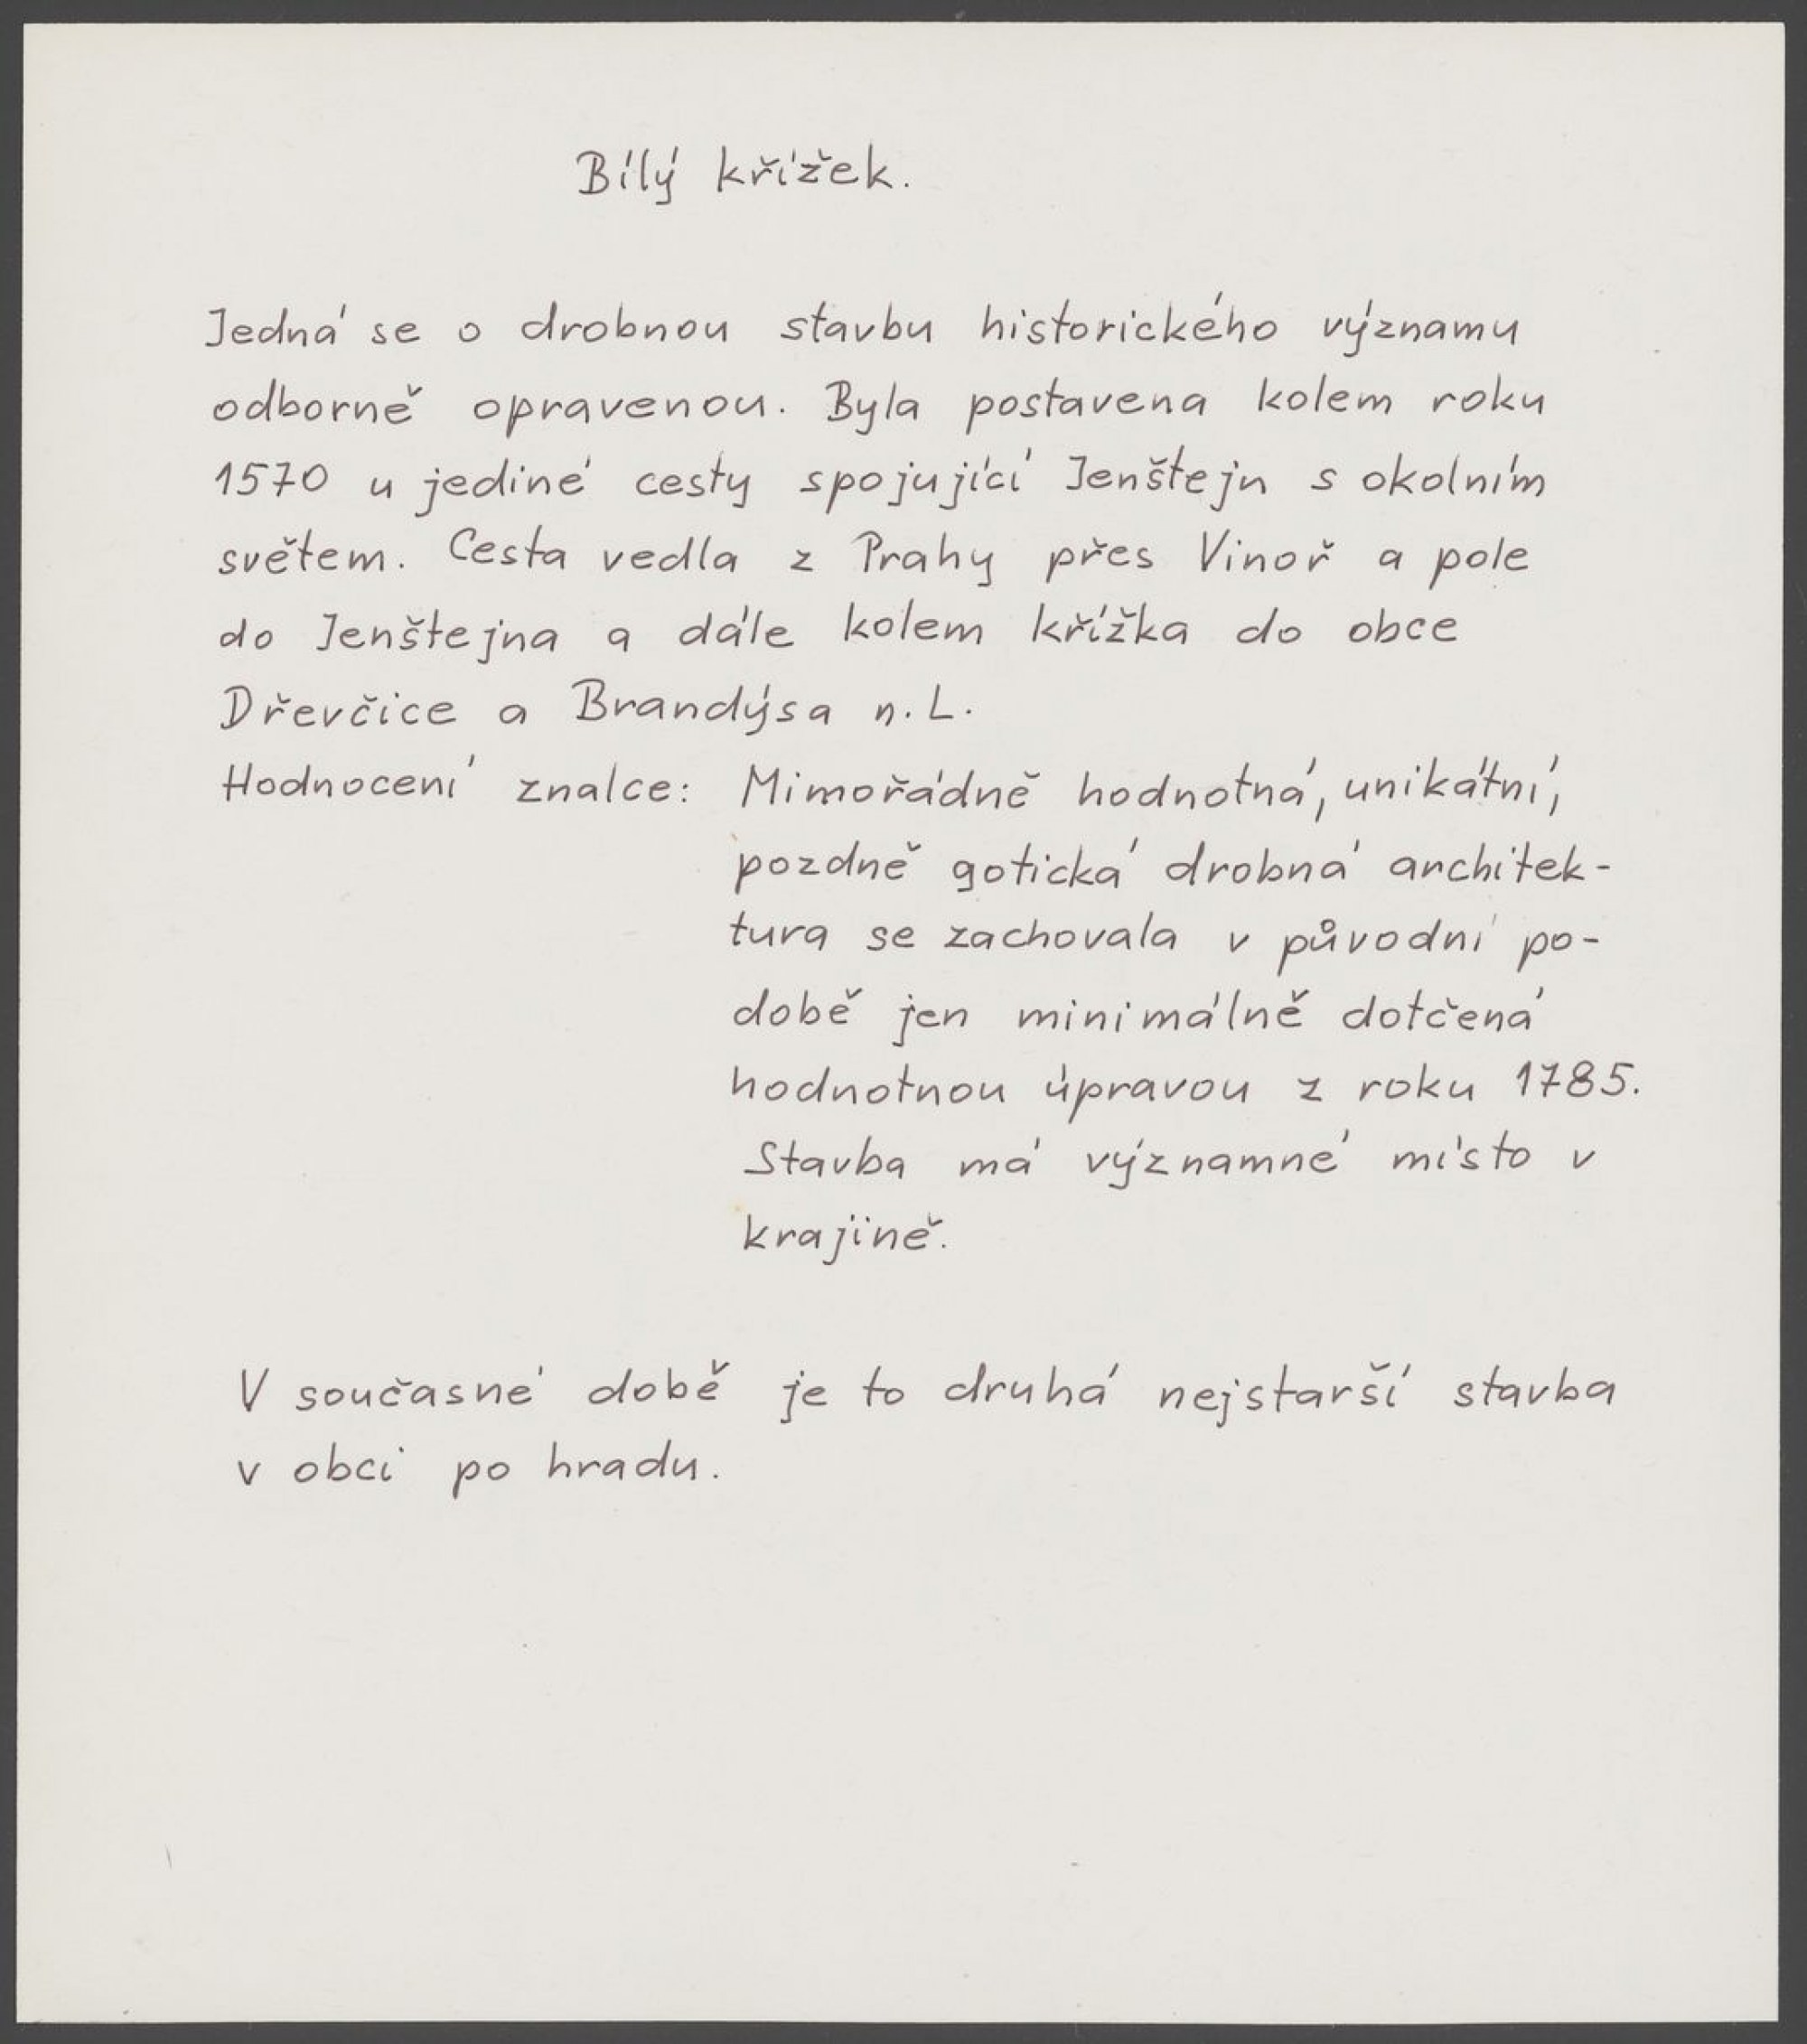 Bílý křížek.
Jedná se o drobnou stavbu historického významu
odborně opravenou. Byla postavena kolem roku
1570 u jediné cesty spojující Jenštejn s okolním
světem. Cesta vedla z Prahy přes Vinoř a pole
do Jenštejna a dále kolem křížka do obce
Dřevčice a Brandýsa n. L.
Hodnocení znalce: Mimořádně hodnotná, unikátní,
pozdně gotická drobná architek-
tura se zachovala v původní po-
době jen minimálně dotčená
hodnotnou úpravou z roku 1785.
Stavba má významné místo v
krajině.
V současné době je to druhá nejstarší stavba
v obci po hradu.